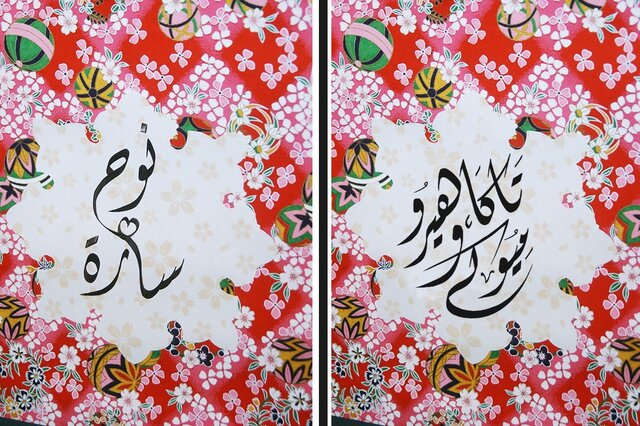 نوح
سارة
تَاكَاهيرُو
و
مِيُوكي